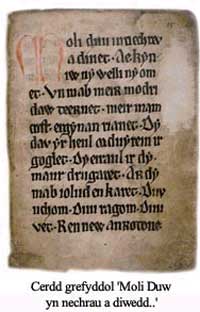 Moli duu innechrev
a diuet. Ae kyn
iw ny welli ny om
et. Vn mab meir modri
daw teernet. Meir mam
crist ergynan rianet. Dy
dav yr heul o duyrein ir
goglet. Dy eiraul ir dy
maur drugaret. Ar dy
mab iolud en karet. Duu
uchom. Duu ragom. Duu
vet. Ren new anrotone
Cerdd grefyddol 'Moli Duw
yn nechrau a diwedd..'